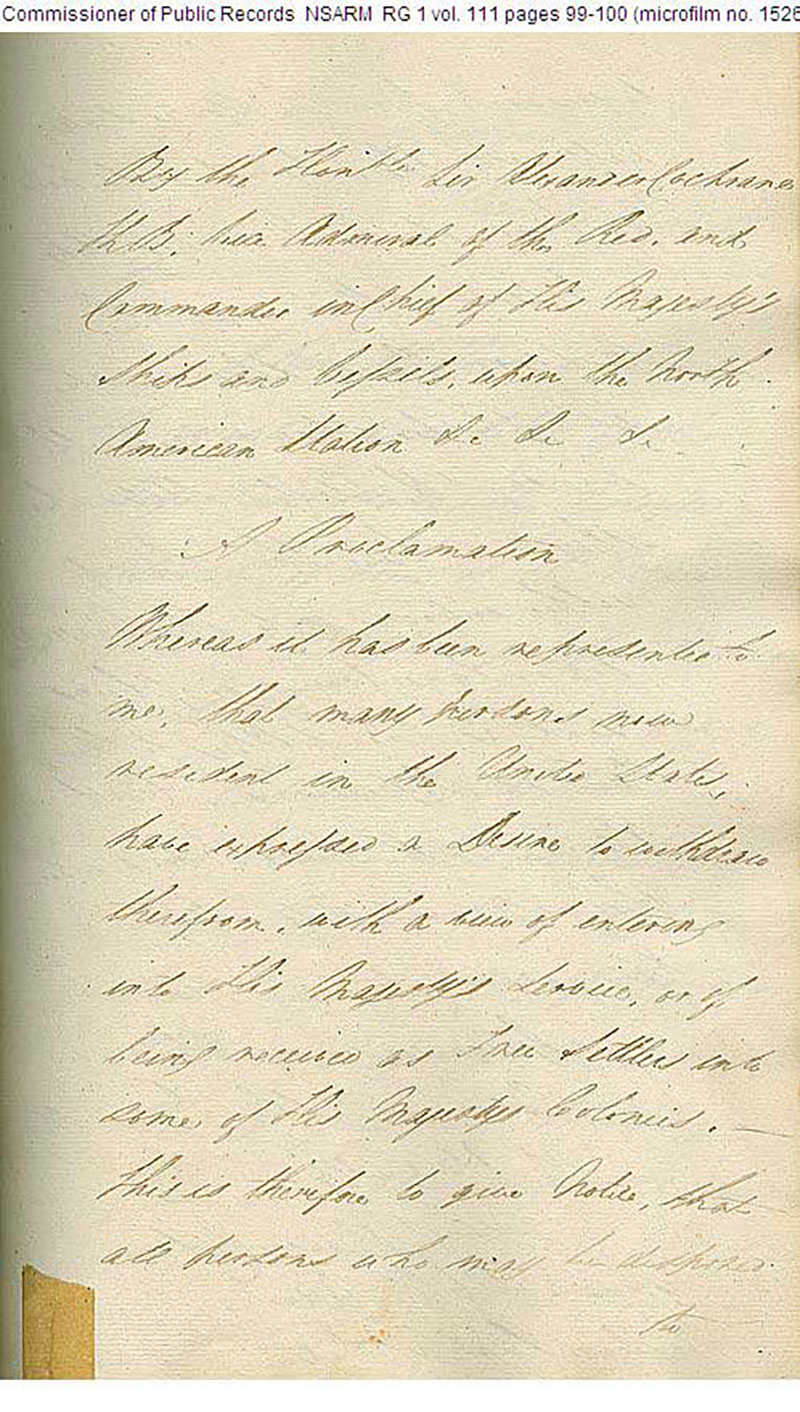 Commissioner of Public Records NSARM RG 1 vol. 111 pages 99-100 (microfilm no. 1526
By the Honble Sir Alexander Cochrane
KB; Vice Admiral of the Red, and
Commander in Chief of His Majesty's
Ships and Vessels, upon the North
American Station &c &c &c
A Proclamation
Whereas it has been represented to
me, that many persons now
resident in the United States,
have expressed a Desire to withdraw
therefrom, with a view of entering
into His Majesty's Service, or of
being received as Free Settlers into
some of His Majestys Colonies. —
This is therefore to give Notice, that
all persons who may be disposed
to